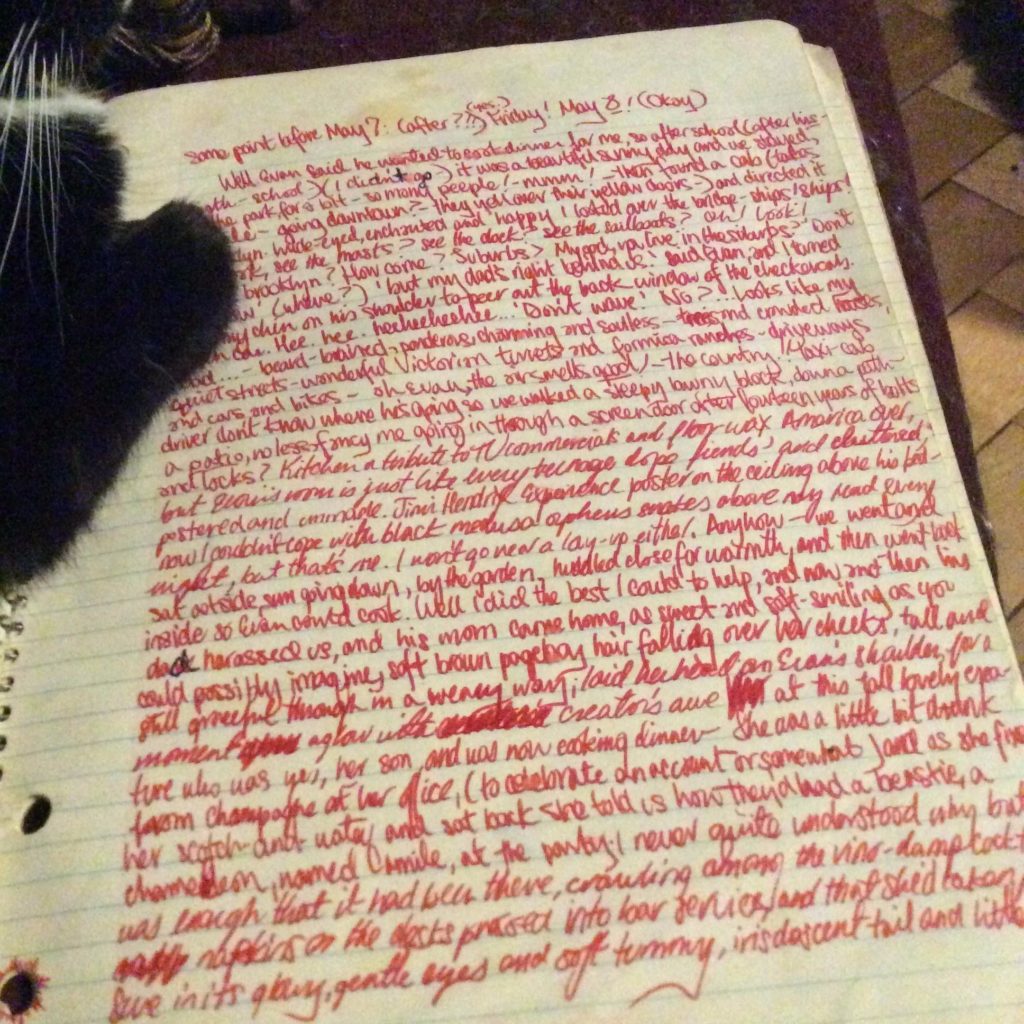 some point before May 7: (after?!!) (yes.) Friday! May 8! (Okay)
Well Evan said he wanted to cook dinner for me, so after school (after his
- school -) (I didn't go) it was a beautiful sunny day and we stayed
park for a bit - so many people! - mmm! - then found a cab (cabs
going downtown? - they yell over their yellow doors -) and directed it
wide-eyed, enchanted and happy I looked over the bridge - ships! ships!
see the masts? see the dock? see the sailboats? oh! look!
brooklyn? How come? Suburbs? My god, ya live in the suburbs? Don't
(where?)! but my dad's right behind us! said Evan, and I turned
my chin on his shoulder to peer out the back window of the checkercab.
Hee hee - heeheeheehee... Don't wave! No? ... Looks like my
- beard - brained, ponderous, charming and soulless - and crowded houses,
quiet streets - wonderful Victorian turrets and formica ranches - driveways
and cars and bikes - oh Evan, the air smells good! - the country! taxi-cab
driver don't know where he's going, so we walked a sleepy lawny block, down a path
a patio, no less, fancy me going in through a screen door after fourteen years of bolts
and locks? Kitchen a tribute to TV commercials and floor wax America over,
but Evan's room is just like every teenage dope fiends' and cluttered
postered and Jimi Hendrix Experience poster on the ceiling above his bed -
now I couldn't cope with black medusa orpheus snakes above my head every
night, but that's me. I won't go near a lay-up either. Anyhow - we went and
sat outside, sun going down, by the garden, huddled close for warmth, and then went back
inside so Evan could cook. Well I did the best I could to help, and now and then his
dad harassed us, and his mom came home, as sweet and soft-smiling as you
could possibly imagine, soft brown pageboy hair falling over her cheeks, tall and
still graceful through in a weary way, laid her head on Evan's shoulder, for a
moment aglow with creator's awe at this tall lovely crea-
ture who was yes, her son, and was now cooking dinner - She was a little bit drunk
from champagne at her office, (to celebrate an account or somewhat) and as she fixed
her scotch-and-water and sat back she told us how they'd had a beastie, a
chameleon, named Camile, at the party; I never quite understood why but
was enough that it had been there, crawling among the ring-damp
napkins on the desks pressed into bar service, and that she'd taken
in its glowy, gentle eyes and soft tummy, iridescent tail and little